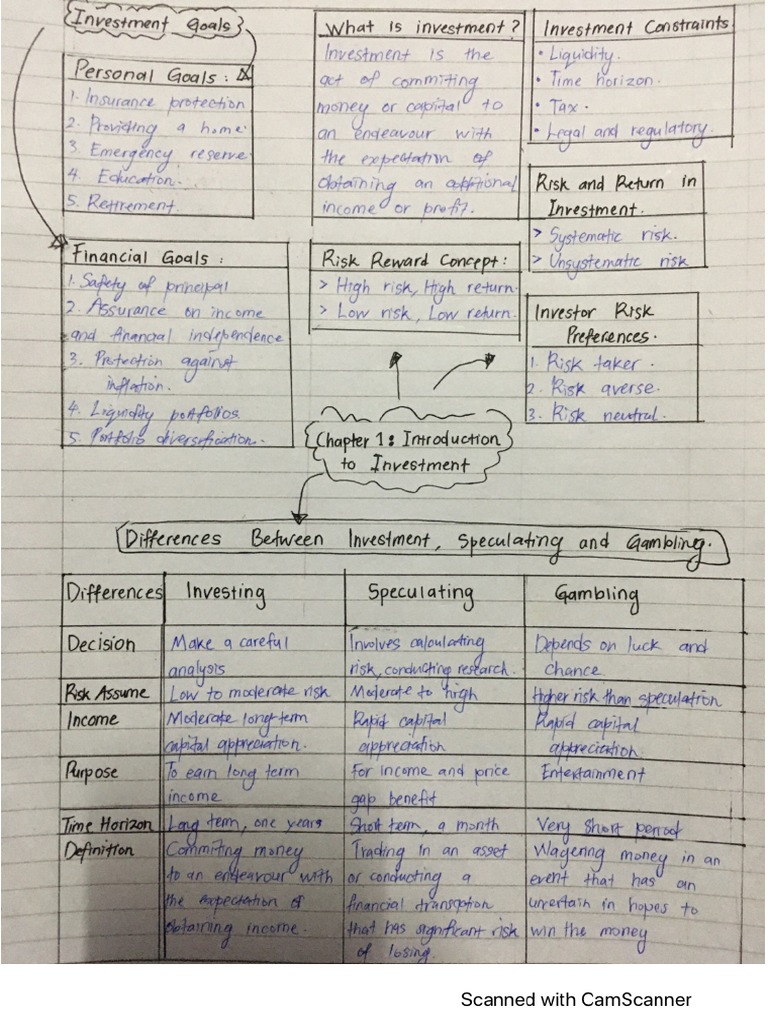 Investment Goals
Personal Goals :
1. Insurance protection
2. Providing a home
3. Emergency reserve
4. Education.
5. Retirement.
Financial Goals :
1. Safety of principal
2. Assurance on income
and financial independence
3. Protection against
inflation.
4. Liquidity portfolios
5. Portfolio diversification.
What is investment?
Investment is the
act of commiting
money or capital to
an endeavour with
the expectation of
obtaining an additional
income or profit.
Risk Reward Concept :
> High risk, High return.
> Low risk, Low return.
Investment Constraints
• Liquidity.
• Time horizon.
• Tax.
• Legal and regulatory.
Risk and Return in
Investment.
> Systematic risk.
> Unsystematic risk
Investor Risk
Preferences.
1. Risk taker.
2. Risk averse.
3. Risk neutral.
Chapter 1: Introduction
to Investment
Differences Between Investment, Speculating and Gambling.
Differences Investing Speculating Gambling
Decision Make a careful Involves calculating Depends on luck and
analysis risk, conducting research. chance.
Risk Assume Low to moderate risk Moderate to high Higher risk than speculation
Income Moderate long-term Rapid capital Rapid capital
capital appreciation. appreciation appreciation.
Purpose To earn long term For income and price Entertainment
income gap benefit
Time Horizon Long term, one years Short term, a month Very short period
Definition Commiting money Trading in an asset Wagering money in an
to an endeavour with or conducting a event that has an
the expectation of financial transaction uncertain in hopes to
obtaining income. that has significant risk win the money
of losing.
Scanned with CamScanner